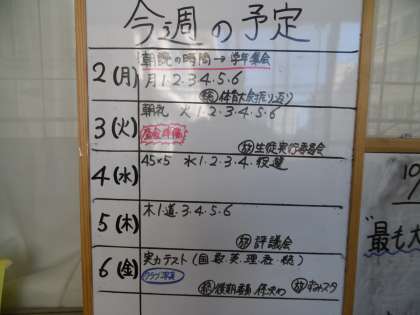 今週の予定
朝読の時間→学年集会
2(月) 月1.2.3.4.5.6
総 体育大会振り返り
朝礼 火1.2.3.4.5.6
3(火)
放 生徒実行委員会
45×5 水1.2.3.4.
4(水)
木1道.3.4.5.6
5(木)
放 評議会
6(金) 実力テスト(国数英.理社
放
10
"最も大